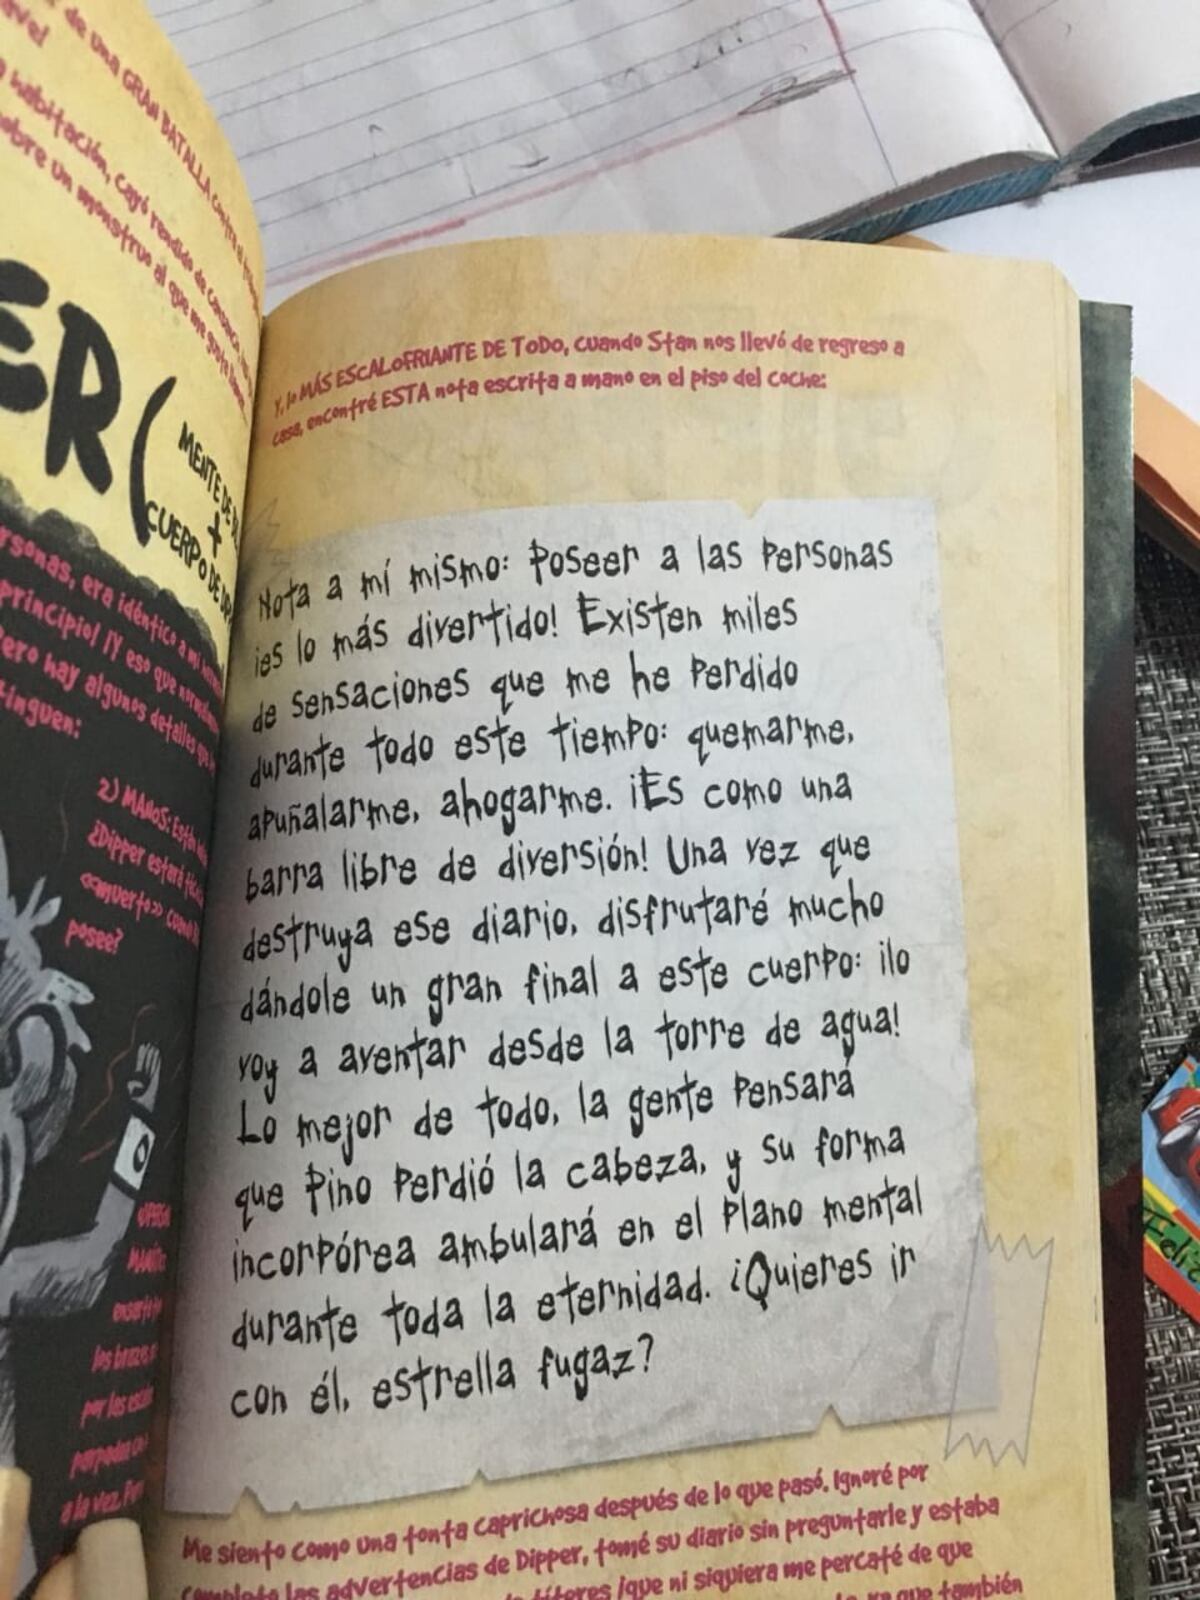 de una GRAN BATALLA contra el
habitación, cayó rendido de cansancio,
sobre un monstruo al que me
ER (
MENTE DE
+
CUERPO DE
era idéntico a mi
principio! ¡Y eso que
Pero hay algunos detalles que
2) MANOS: Están
¿Dipper estará
«muerto» cuando
posee?
ensarta
los brazos
por las
a la vez.
Y, lo MÁS ESCALOFRIANTE DE TODO, cuando Stan nos llevó de regreso a
casa, encontré ESTA nota escrita a mano en el piso del coche:
Nota a mí mismo: Poseer a las personas
¡es lo más divertido! Existen miles
de sensaciones que me he perdido
durante todo este tiempo: quemarme,
apuñalarme, ahogarme. ¡Es como una
barra libre de diversión! Una vez que
destruya ese diario, disfrutaré mucho
dándole un gran final a este cuerpo: ¡lo
voy a aventar desde la torre de agua!
Lo mejor de todo, la gente pensará
que Pino perdió la cabeza, y su forma
incorpórea ambulará en el plano mental
durante toda la eternidad. ¿Quieres ir
con él, estrella fugaz?
Me siento como una tonta caprichosa después de lo que pasó. Ignoré por
completo las advertencias de Dipper, tomé su diario sin preguntarle y estaba
títeres ¡que ni siquiera me percaté de que
ya que también